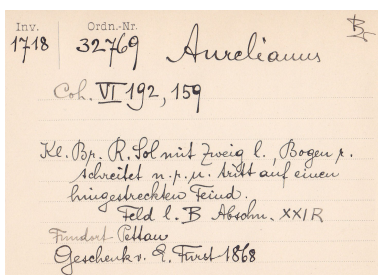 Inv. Ordn.-Nr.
1718 32769 Aurelianus
Coh. VI 192, 159
Kl. Br. R. Sol mit Zweig l., Bogen r.
schreitet n. r. u. tritt auf einen
hingestreckten Feind.
Feld l. B Abschn. XXIR
Fundort Pettau
Geschenk v. E. Fürst 1868